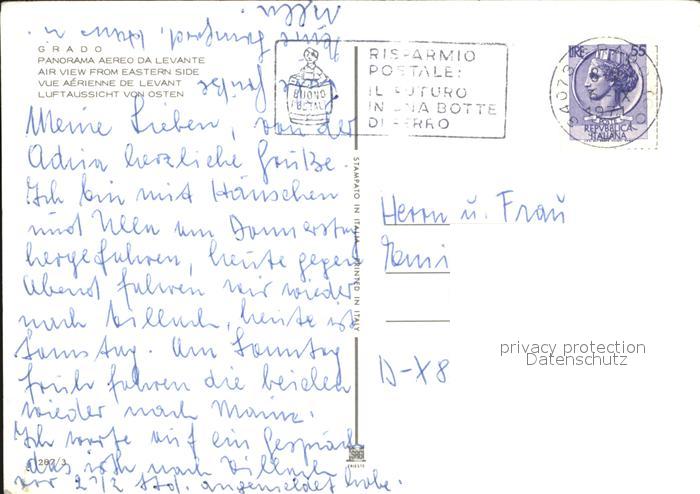 GRADO
PANORAMA AEREO DA LEVANTE
AIR VIEW FROM EASTERN SIDE
VUE AÉRIENNE DE LEVANT
LUFTAUSSICHT VON OSTEN
BUONO
RISPARMIO
POSTALE:
IL FUTURO
IN UNA BOTTE
DI FERRO
LIRE 55
REPVBBLICA
ITALIANA
Meine Lieben, von der
Adria herzliche Grüße.
Ich bin mit Hänschen
und Ulla am Donnerstag
hergefahren, heute gegen
Abend fahren wir wieder
nach Villach, heute ist
Samstag. Am Sonntag
früh fahren die beiden
wieder nach Mainz.
Ich warte auf ein Gespräch
das ich nach Villach
vor 2 1/2 Std. angemeldet habe.
STAMPATO IN ITALIA PRINTED IN ITALY
Herrn u. Frau
D-X8
privacy protection
Datenschutz
287/3
TRIESTE